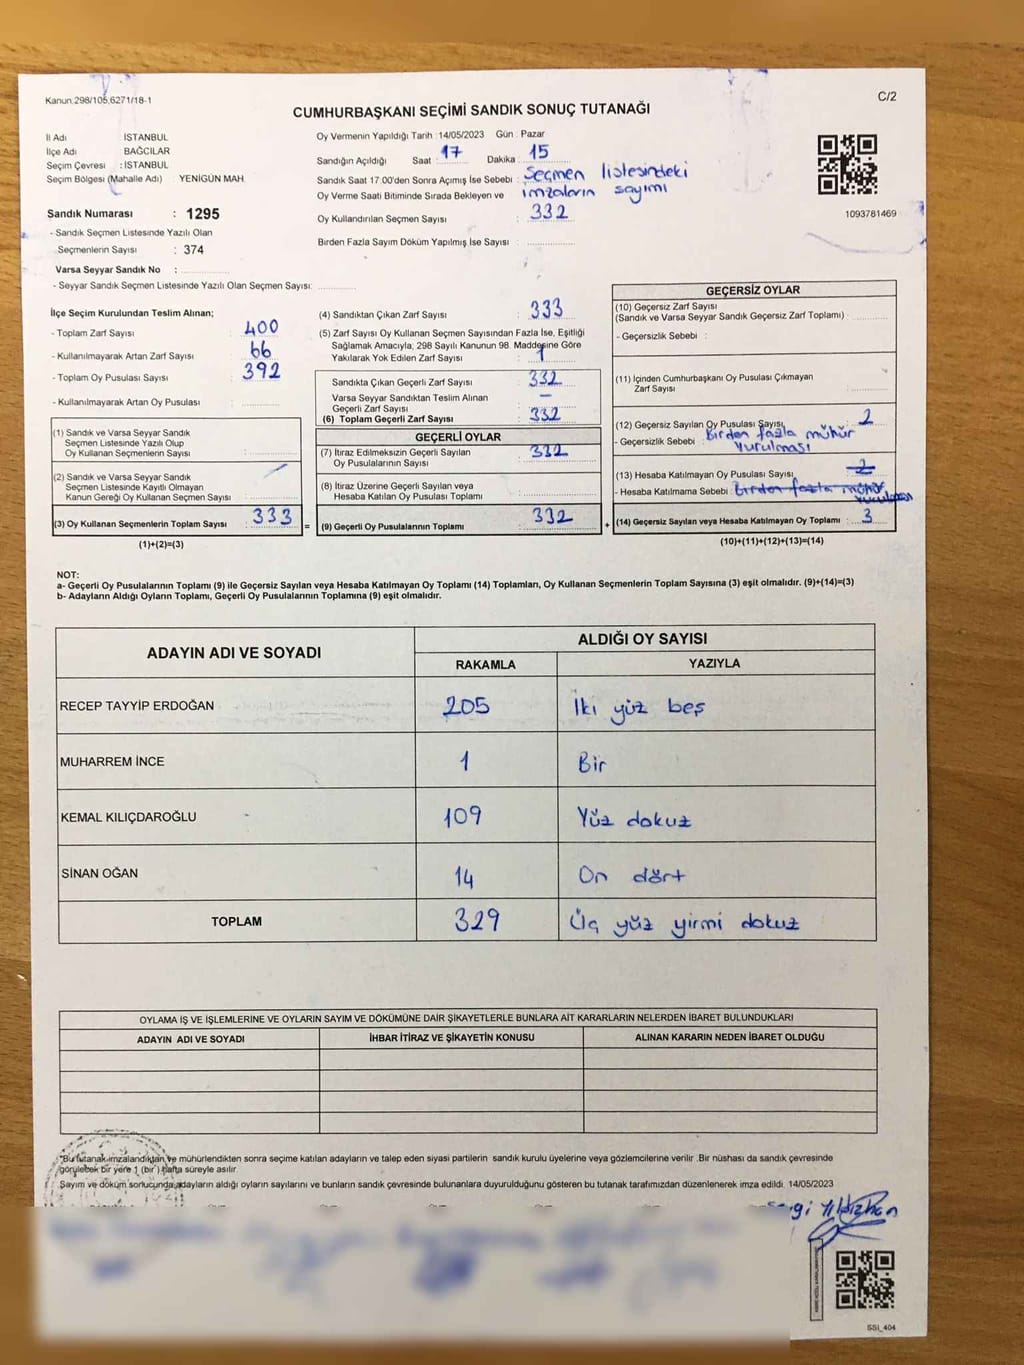 Kanun:298/105,6271/18-1
C/2
CUMHURBAŞKANI SEÇİMİ SANDIK SONUÇ TUTANAĞI
İl Adı : İSTANBUL
İlçe Adı : BAĞCILAR
Seçim Çevresi : İSTANBUL
Seçim Bölgesi (Mahalle Adı) YENİGÜN MAH.
Sandık Numarası : 1295
- Sandık Seçmen Listesinde Yazılı Olan
Seçmenlerin Sayısı : 374
Varsa Seyyar Sandık No :
- Seyyar Sandık Seçmen Listesinde Yazılı Olan Seçmen Sayısı:
Oy Vermenin Yapıldığı Tarih :14/05/2023 Gün : Pazar
Sandığın Açıldığı Saat : 17 Dakika : 15
Sandık Saat 17:00'den Sonra Açımış İse Sebebi : Seçmen listesindeki
Oy Verme Saati Bitiminde Sırada Bekleyen ve imzaların sayımı
Oy Kullandırılan Seçmen Sayısı : 332
Birden Fazla Sayım Döküm Yapılmış İse Sayısı :
1093781469
İlçe Seçim Kurulundan Teslim Alınan;
- Toplam Zarf Sayısı : 400
- Kullanılmayarak Artan Zarf Sayısı : 66
- Toplam Oy Pusulası Sayısı : 392
- Kullanılmayarak Artan Oy Pusulası :
(1) Sandık ve Varsa Seyyar Sandık
Seçmen Listesinde Yazılı Olup
Oy Kullanan Seçmenlerin Sayısı :
(2) Sandık ve Varsa Seyyar Sandık
Seçmen Listesinde Kayıtlı Olmayan
Kanun Gereği Oy Kullanan Seçmen Sayısı :
(3) Oy Kullanan Seçmenlerin Toplam Sayısı : 333 =
(1)+(2)=(3)
(4) Sandıktan Çıkan Zarf Sayısı : 333
(5) Zarf Sayısı Oy Kullanan Seçmen Sayısından Fazla İse, Eşitliği
Sağlamak Amacıyla; 298 Sayılı Kanunun 98. Maddesine Göre
Yakılarak Yok Edilen Zarf Sayısı : 1
Sandıkta Çıkan Geçerli Zarf Sayısı : 332
Varsa Seyyar Sandıktan Teslim Alınan
Geçerli Zarf Sayısı : –
(6) Toplam Geçerli Zarf Sayısı : 332
GEÇERLİ OYLAR
(7) İtiraz Edilmeksizin Geçerli Sayılan : 332
Oy Pusulalarının Sayısı
(8) İtiraz Üzerine Geçerli Sayılan veya
Hesaba Katılan Oy Pusulası Toplamı :
(9) Geçerli Oy Pusulalarının Toplamı : 332 +
GEÇERSİZ OYLAR
(10) Geçersiz Zarf Sayısı
(Sandık ve Varsa Seyyar Sandık Geçersiz Zarf Toplamı) :
- Geçersizlik Sebebi :
(11) İçinden Cumhurbaşkanı Oy Pusulası Çıkmayan
Zarf Sayısı :
(12) Geçersiz Sayılan Oy Pusulası Sayısı : 2
- Geçersizlik Sebebi : Birden fazla mühür
vurulması
(13) Hesaba Katılmayan Oy Pusulası Sayısı : 2
- Hesaba Katılmama Sebebi : Birden fazla mühür
vurulması
(14) Geçersiz Sayılan veya Hesaba Katılmayan Oy Toplamı : 3
(10)+(11)+(12)+(13)=(14)
NOT:
a- Geçerli Oy Pusulalarının Toplamı (9) ile Geçersiz Sayılan veya Hesaba Katılmayan Oy Toplamı (14) Toplamları, Oy Kullanan Seçmenlerin Toplam Sayısına (3) eşit olmalıdır. (9)+(14)=(3)
b- Adayların Aldığı Oyların Toplamı, Geçerli Oy Pusulalarının Toplamına (9) eşit olmalıdır.
ADAYIN ADI VE SOYADI
ALDIĞI OY SAYISI
RAKAMLA YAZIYLA
RECEP TAYYİP ERDOĞAN 205 İki yüz beş
MUHARREM İNCE 1 Bir
KEMAL KILIÇDAROĞLU 109 Yüz dokuz
SİNAN OĞAN 14 On dört
TOPLAM 329 Üç yüz yirmi dokuz
OYLAMA İŞ VE İŞLEMLERİNE VE OYLARIN SAYIM VE DÖKÜMÜNE DAİR ŞİKAYETLERLE BUNLARA AİT KARARLARIN NELERDEN İBARET BULUNDUKLARI
ADAYIN ADI VE SOYADI İHBAR İTİRAZ VE ŞİKAYETİN KONUSU ALINAN KARARIN NEDEN İBARET OLDUĞU
*Bu tutanak imzalandıktan ve mühürlendikten sonra seçime katılan adayların ve talep eden siyasi partilerin sandık kurulu üyelerine veya gözlemcilerine verilir .Bir nüshası da sandık çevresinde
görülebilek bir yere 1 (bir ) hafta süreyle asılır.
Sayım ve döküm sonucunda adayların aldığı oyların sayılarını ve bunların sandık çevresinde bulunanlara duyurulduğunu gösteren bu tutanak tarafımızdan düzenlenerek imza edildi. 14/05/2023
SSİ_404